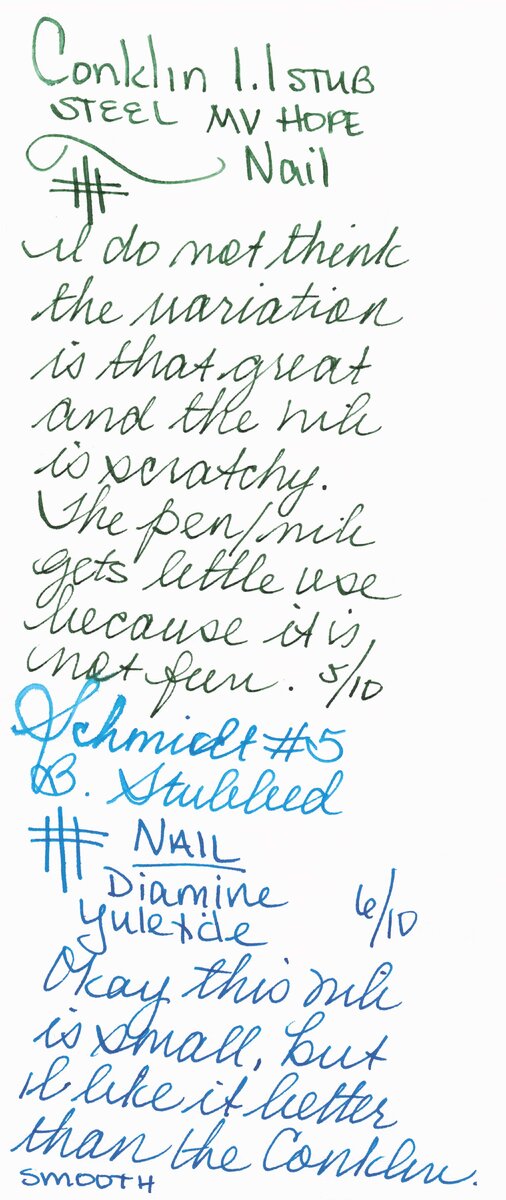 Conklin 1.1 STUB
STEEL MV HOPE
Nail
I do not think
the variation
is that great
and the nib
is scratchy.
The pen/nib
gets little use
because it is
not fun. 5/10
Schmidt #5
B. Stubbed
NAIL
Diamine
Yuletide 6/10
Okay this nib
is small, but
I like it better
than the Conklin.
SMOOTH